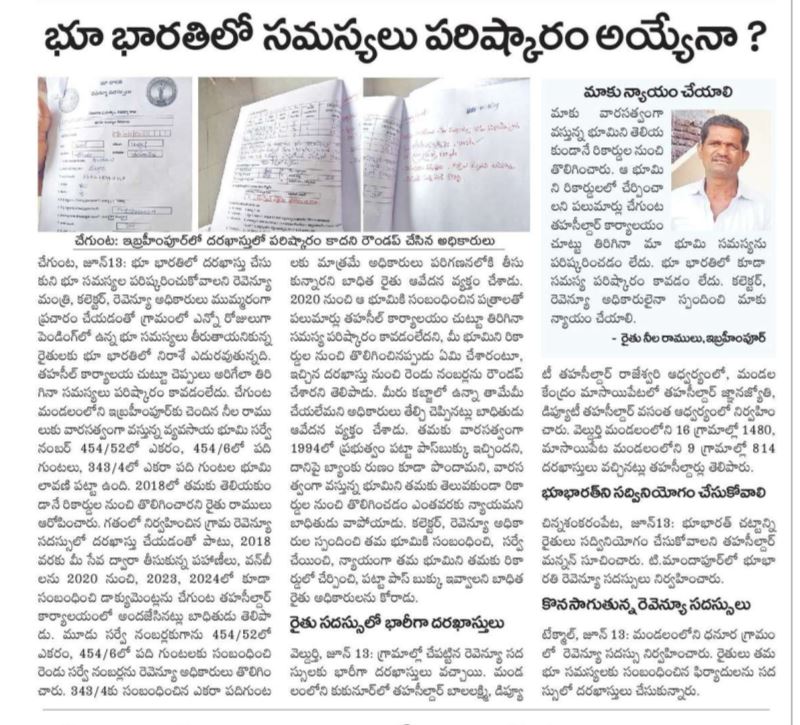 భూ భారతిలో సమస్యలు పరిష్కారం అయ్యేనా ?
చేగుంట: ఇబ్రహీంపూర్‌లో దరఖాస్తులో పరిష్కారం కాదని రౌండప్ చేసిన అధికారులు
చేగుంట, జూన్13: భూ భారతిలో దరఖాస్తు చేసు
కుని భూ సమస్యల పరిష్కరించుకోవాలని రెవెన్యూ
మంత్రి, కలెక్టర్, రెవెన్యూ అధికారులు ముమ్మరంగా
ప్రచారం చేయడంతో గ్రామంలో ఎన్నో రోజులుగా
పెండింగ్‌లో ఉన్న భూ సమస్యలు తీరుతాయనికున్న
రైతులకు భూ భారతిలో నిరాశే ఎదురవుతున్నది.
తహసీల్ కార్యాలయ చుట్టూ చెప్పులు అరిగేలా తిరి
గినా సమస్యలు పరిష్కారం కావడంలేదు. చేగుంట
మండలంలోని ఇబ్రహీంపూర్‌కు చెందిన నీల రాము
లుకు వారసత్వంగా వస్తున్న వ్యవసాయ భూమి సర్వే
నంబర్ 454/52లో ఎకరం, 454/6లో పది
గుంటలు, 343/4లో ఎకరా పది గుంటల భూమి
లావణి పట్టా ఉంది. 2018లో తమకు తెలియకుం
డానే రికార్డుల నుంచి తొలిగించారని రైతు రాములు
ఆరోపించారు. గతంలో నిర్వహించిన గ్రామ రెవెన్యూ
సదస్సులో దరఖాస్తు చేయడంతో పాటు, 2018
వరకు మీ సేవ ద్వారా తీసుకున్న పహాణీలు, వన్‌బీ
లను 2020 నుంచి, 2023, 2024లో కూడా
సంబంధించి డాక్యుమెంట్లను చేగుంట తహసీల్దార్
కార్యాలయంలో అందజేసినట్లు బాధితుడు తెలిపా
డు. మూడు సర్వే నంబర్లకుగాను 454/52లో
ఎకరం, 454/6లో పది గుంటలకు సంబంధించి
రెండు సర్వే నంబర్లను రెవెన్యూ అధికారులు తొలిగిం
చారు. 343/4కు సంబంధించిన ఎకరా పదిగుంట
లకు మాత్రమే అధికారులు పరిగణనలోకి తీసు
కున్నారని బాధిత రైతు ఆవేదన వ్యక్తం చేశాడు.
2020 నుంచి ఆ భూమికి సంబంధించిన పత్రాలతో
పలుమార్లు తహసీల్ కార్యాలయం చుట్టూ తిరిగినా
సమస్య పరిష్కారం కావడంలేదని, మీ భూమిని రికా
ర్డుల నుంచి తొలిగించినప్పుడు ఏమి చేశారంటూ,
ఇచ్చిన దరఖాస్తు నుంచి రెండు నంబర్లను రౌండప్
చేశారని తెలిపాడు. మీరు కబ్జాలో ఉన్నా తామేమీ
చేయలేమని అధికారులు తేల్చి చెప్పినట్లు బాధితుడు
ఆవేదన వ్యక్తం చేశాడు. తమకు వారసత్వంగా
1994లో ప్రభుత్వం పట్టా పాస్‌బుక్కు ఇచ్చిందని,
దానిపై బ్యాంకు రుణం కూడా పొందామని, వారస
త్వంగా వస్తున్న భూమిని తమకు తెలువకుండా రికా
ర్డుల నుంచి తొలిగించడం ఎంతవరకు న్యాయమని
బాధితుడు వాపోయాడు. కలెక్టర్, రెవెన్యూ అధికా
రుల స్పందించి తమ భూమికి సంబంధించి, సర్వే
చేయించి, న్యాయంగా తమ భూమిని తమకు రికా
ర్డులో చేర్పించి, పట్టా పాస్ బుక్కు ఇవ్వాలని బాధిత
రైతు అధికారులను కోరాడు.
రైతు సదస్సులో భారీగా దరఖాస్తులు
వెల్దుర్తి, జూన్ 13: గ్రామాల్లో చేపట్టిన రెవెన్యూ సద
స్సులకు భారీగా దరఖాస్తులు వచ్చాయి. మండ
లంలోని కుకునూర్‌లో తహసీల్దార్ బాలలక్ష్మి, డిప్యూ
మాకు న్యాయం చేయాలి
మాకు వారసత్వంగా
వస్తున్న భూమిని తెలియ
కుండానే రికార్డుల నుంచి
తొలిగించారు. ఆ భూమి
ని రికార్డులలో చేర్పించా
లని పలుమార్లు చేగుంట
తహసీల్దార్ కార్యాలయం
చుట్టు తిరిగినా మా భూమి సమస్యను
పరిష్కరించడం లేదు. భూ భారతిలో కూడా
సమస్య పరిష్కారం కావడం లేదు. కలెక్టర్,
రెవెన్యూ అధికారులైనా స్పందించి మాకు
న్యాయం చేయాలి.
- రైతు నీల రాములు, ఇబ్రహీంపూర్
టీ తహసీల్దార్ రాజేశ్వరి ఆధ్వర్యంలో, మండల
కేంద్రం మాసాయిపేటలో తహసీల్దార్ జ్ఞానజ్యోతి,
డిప్యూటీ తహసీల్దార్ వసంత ఆధ్వర్యంలో నిర్వహిం
చారు. వెల్దుర్తి మండలంలోని 16 గ్రామాల్లో 1480,
మాసాయిపేట మండలంలోని 9 గ్రామాల్లో 814
దరఖాస్తులు వచ్చినట్లు తహసీల్దార్లు తెలిపారు.
భూభారత్‌ని సద్వినియోగం చేసుకోవాలి
చిన్నశంకరంపేట, జూన్13: భూభారత్ చట్టాన్ని
రైతులు సద్వినియోగం చేసుకోవాలని తహసీల్దార్
మన్నన్ సూచించారు. టి.మాందాపూర్‌లో భూభా
రతి రెవెన్యూ సదస్సులు నిర్వహించారు.
కొనసాగుతున్న రెవెన్యూ సదస్సులు
టేక్మాల్, జూన్ 13: మండలంలోని ధనూర గ్రామం
లో రెవెన్యూ సదస్సు నిర్వహించారు. రైతులు తమ
భూ సమస్యలకు సంబంధించిన ఫిర్యాదులను సద
స్సులో దరఖాస్తులు చేసుకున్నారు.